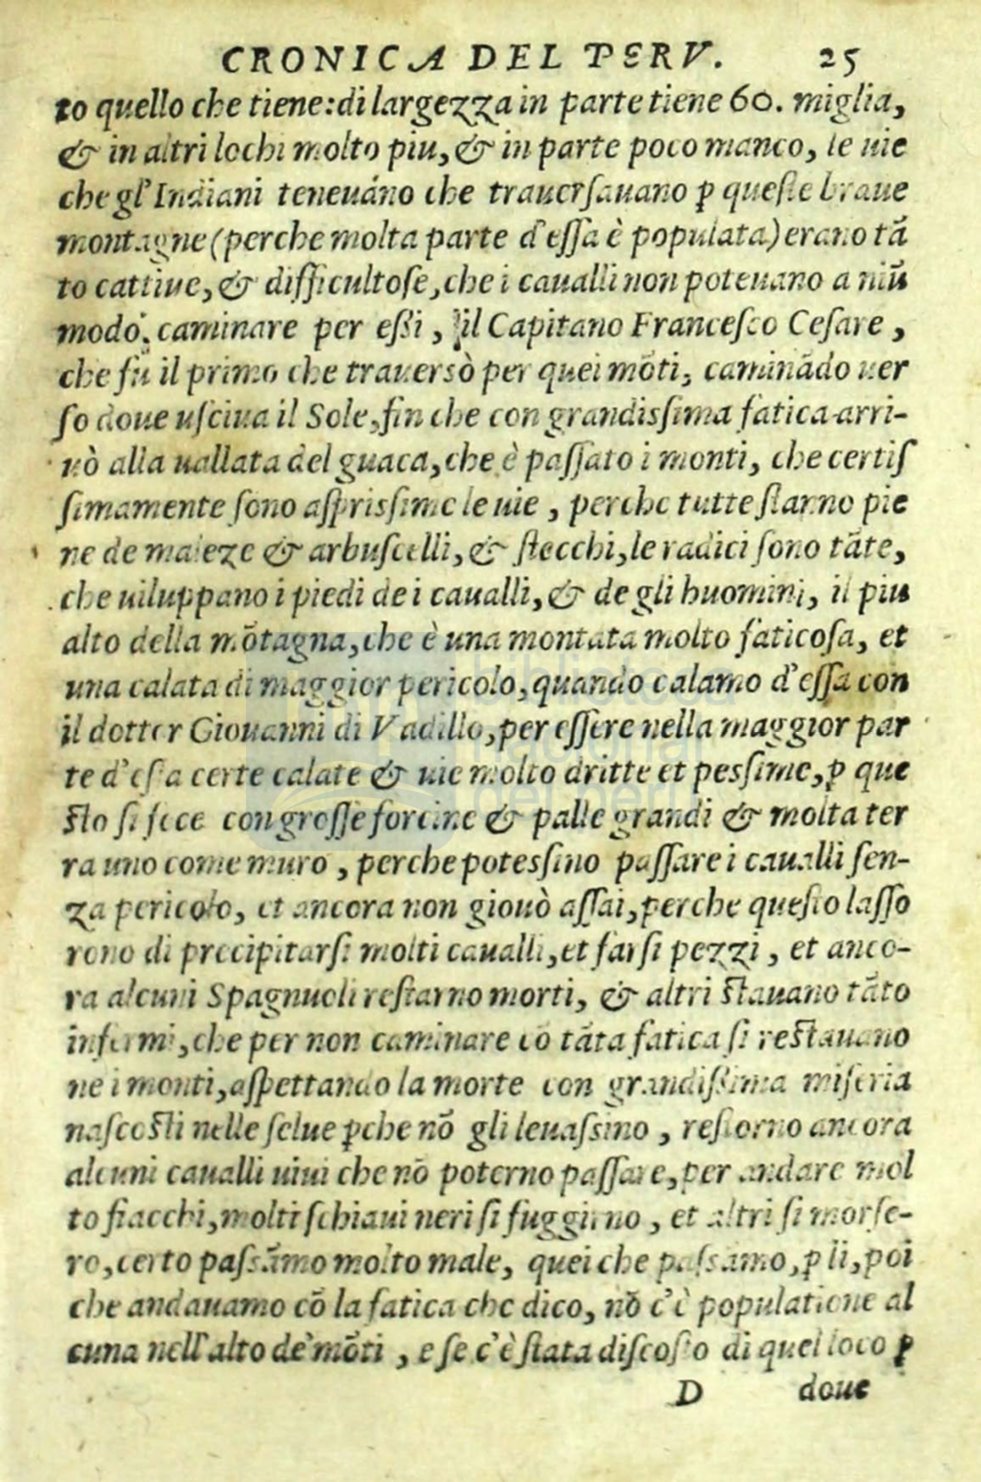 CRONICA DEL PERV. 25
to quello che tiene: di largezza in parte tiene 60. miglia,
& in altri lochi molto piu, & in parte poco manco, le uie
che gl'Indiani teneuáno che trauersauano ꝑ queste braue
montagne (perche molta parte d'essa è populata) erano tā
to cattiue, & difficultose, che i caualli non poteuano a niũ
modo. caminare per essi, il Capitano Francesco Cesare,
che fù il primo che trauersò per quei mōti, caminādo uer
so doue usciua il Sole, fin che con grandissima fatica arri-
uò alla uallata del guaca, che è passato i monti, che certis
simamente sono asprissime le uie, perche tutte starno pie
ne de maleze & arbuscelli, & stecchi, le radici sono tāte,
che uiluppano i piedi de i caualli, & de gli huomini, il piu
alto della mōtagna, che è una montata molto faticosa, et
una calata di maggior pericolo, quando calamo d'essa con
il dottor Giouanni di Vadillo, per essere nella maggior par
te d'essa certe calate & uie molto dritte et pessime, ꝑ que
sto si fece con grosse forcine & palle grandi & molta ter
ra uno come muro, perche potessino passare i caualli sen-
za pericolo, et ancora non giouò assai, perche questo lasso
rono di precipitarsi molti caualli, et farsi pezzi, et anco-
ra alcuni Spagnuoli restarno morti, & altri stauano tāto
infermi, che per non caminare cō tāta fatica si restauano
ne i monti, aspettando la morte con grandissima miseria
nascosti nelle selue ꝑche nō gli leuassino, restorno ancora
alcuni caualli uiui che nō poterno passare, per andare mol
to fiacchi, molti schiaui neri si fuggirno, et altri si morse-
ro, certo passāmo molto male, quei che passamo, ꝑ lì, poi
che andauamo cō la fatica che dico, nō c'è populatione al
cuna nell'alto de' mōti, e se c'è stata discosto di quel loco ꝑ
D doue